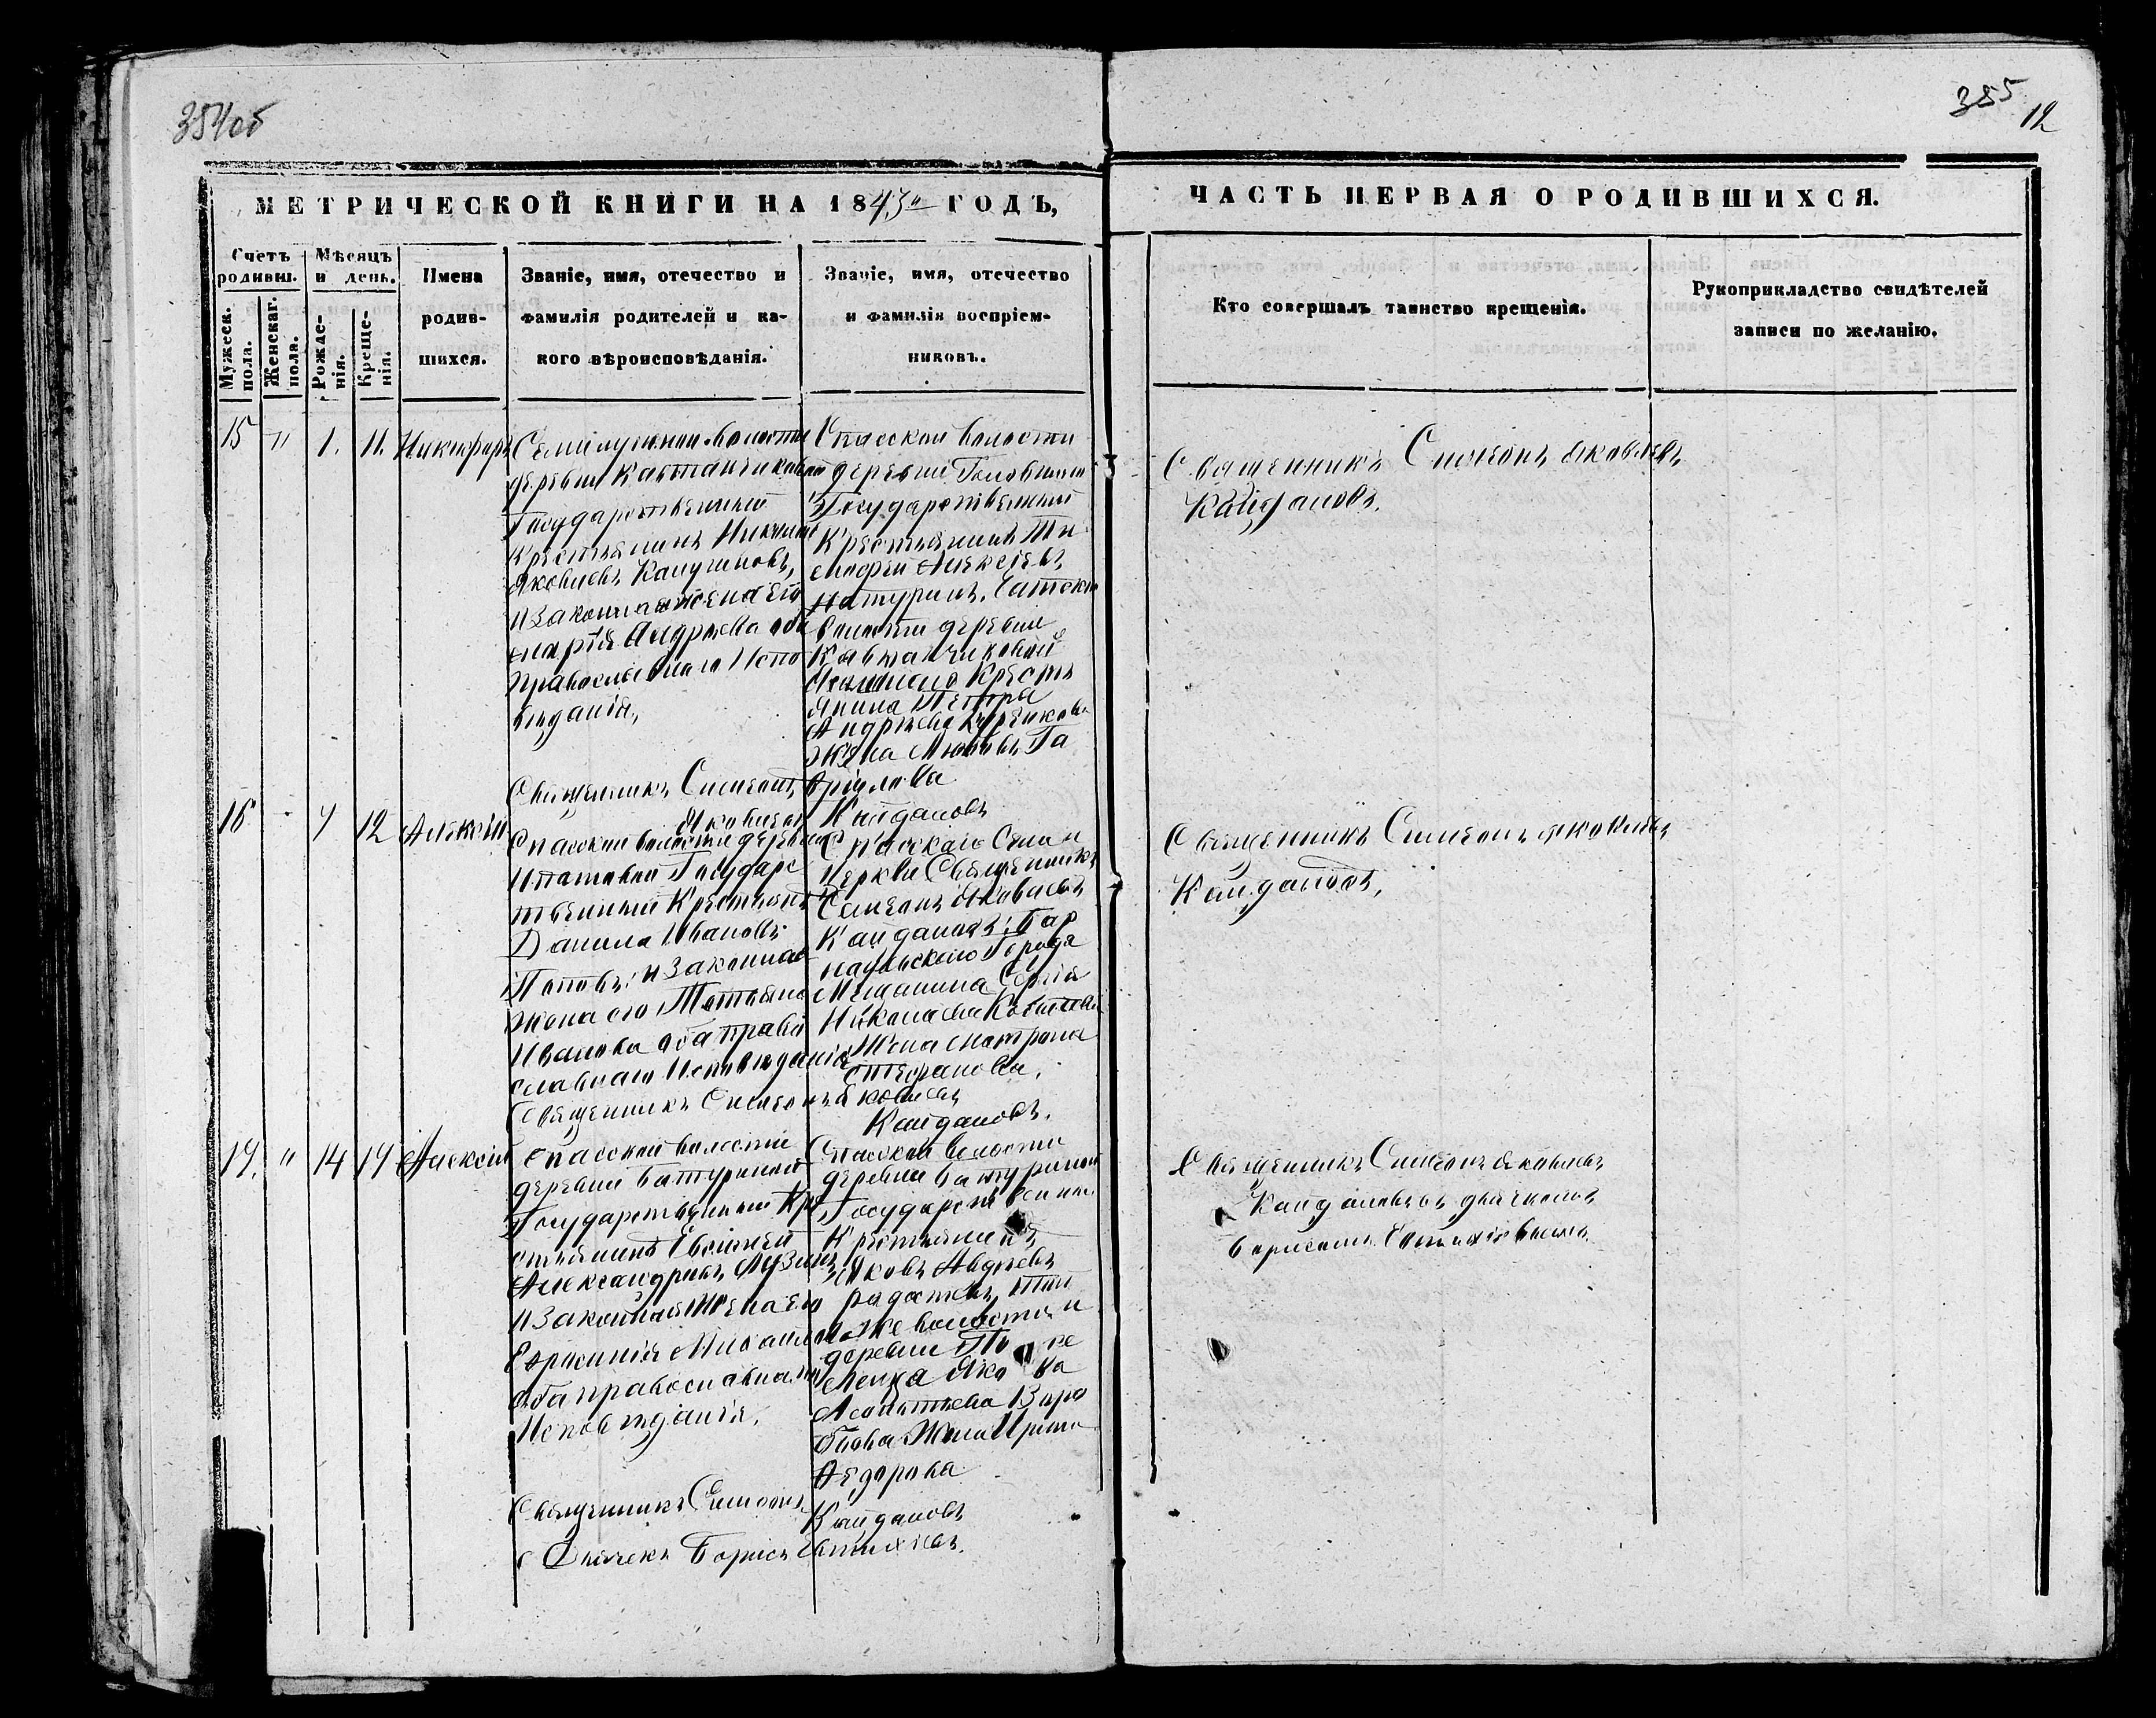 354об
385
12
МЕТРИЧЕСКОЙ КНИГИ НА 1843й ГОДЪ,
ЧАСТЬ ПЕРВАЯ О РОДИВШИХСЯ.
Счетъ родивш.
Мужеск. пола.
Женскаг. пола.
Мѣсяцъ и день.
Рожденія.
Крещенія.
Имена
родив-
шихся.
Званіе, имя, отечество и
фамилія родителей и ка-
кого вѣроисповѣданія.
Званіе, имя, отечество
и фамилія воспріем-
никовъ.
Кто совершалъ таинство крещенія.
Рукоприкладство свидѣтелей
записи по желанію.
15 " 1. 11. Никифоръ
Семилужной волости
деревни Кавтанчиковой
Государственный
Крестьянинъ
Яковлевъ
и Законная жена его
Марія Андреева оба
Православнаго Испо
вѣданія,
Спасской волости
деревни Головиной
Государственный
Крестьянинъ Ти
мофей Алексѣевъ
волости деревни
Кавтанчиковой
Кресть
янина Петра
Андреева
жена Любовь Га
вріилова
Священникъ Симеонъ
Яковлевъ Кайдановъ
Священникъ Симеонъ Яковлевъ
Кайдановъ.
16 - 4 12 Алексѣй
Спасской волости деревни
Ипатовой Государс
твенный Крестьянинъ
Данила Ивановъ
Поповъ и Законная
жена его Татьяна
Иванова оба право
славнаго Исповѣданія
Спасскаго Села
Церкви Священникъ
Семеонъ Яковлевъ
Кайдановъ: Бар
наульского Города
Мещанина Сергія
Николаева
Жена Матрона
Стефанова.
Священникъ Симеонъ Яковлевъ
Кайдановъ.
Священникъ Симеонъ Яковлевъ
Кайдановъ,
17. " 14 17 Алексій
Спасской волости
деревни Батуриной
Государственный Кре
стьянинъ Евсигней
Александровъ
и Законная жена его
Ефросинія Михайлова
оба православнаго
Исповѣданія.
Спасской волости
деревни Батуриной
Государственной
Крестьянинъ
Яковъ Авдѣевъ
той
же волости и
деревни
Яко ва
Жена Ирина
Федорова
Священникъ Симеонъ Кайдановъ
Дьячекъ Борисъ Евтихіевъ.
Священникъ Симеонъ Яковлевъ
Кайдановъ съ дьячкомъ
Борисомъ Евтихіевымъ